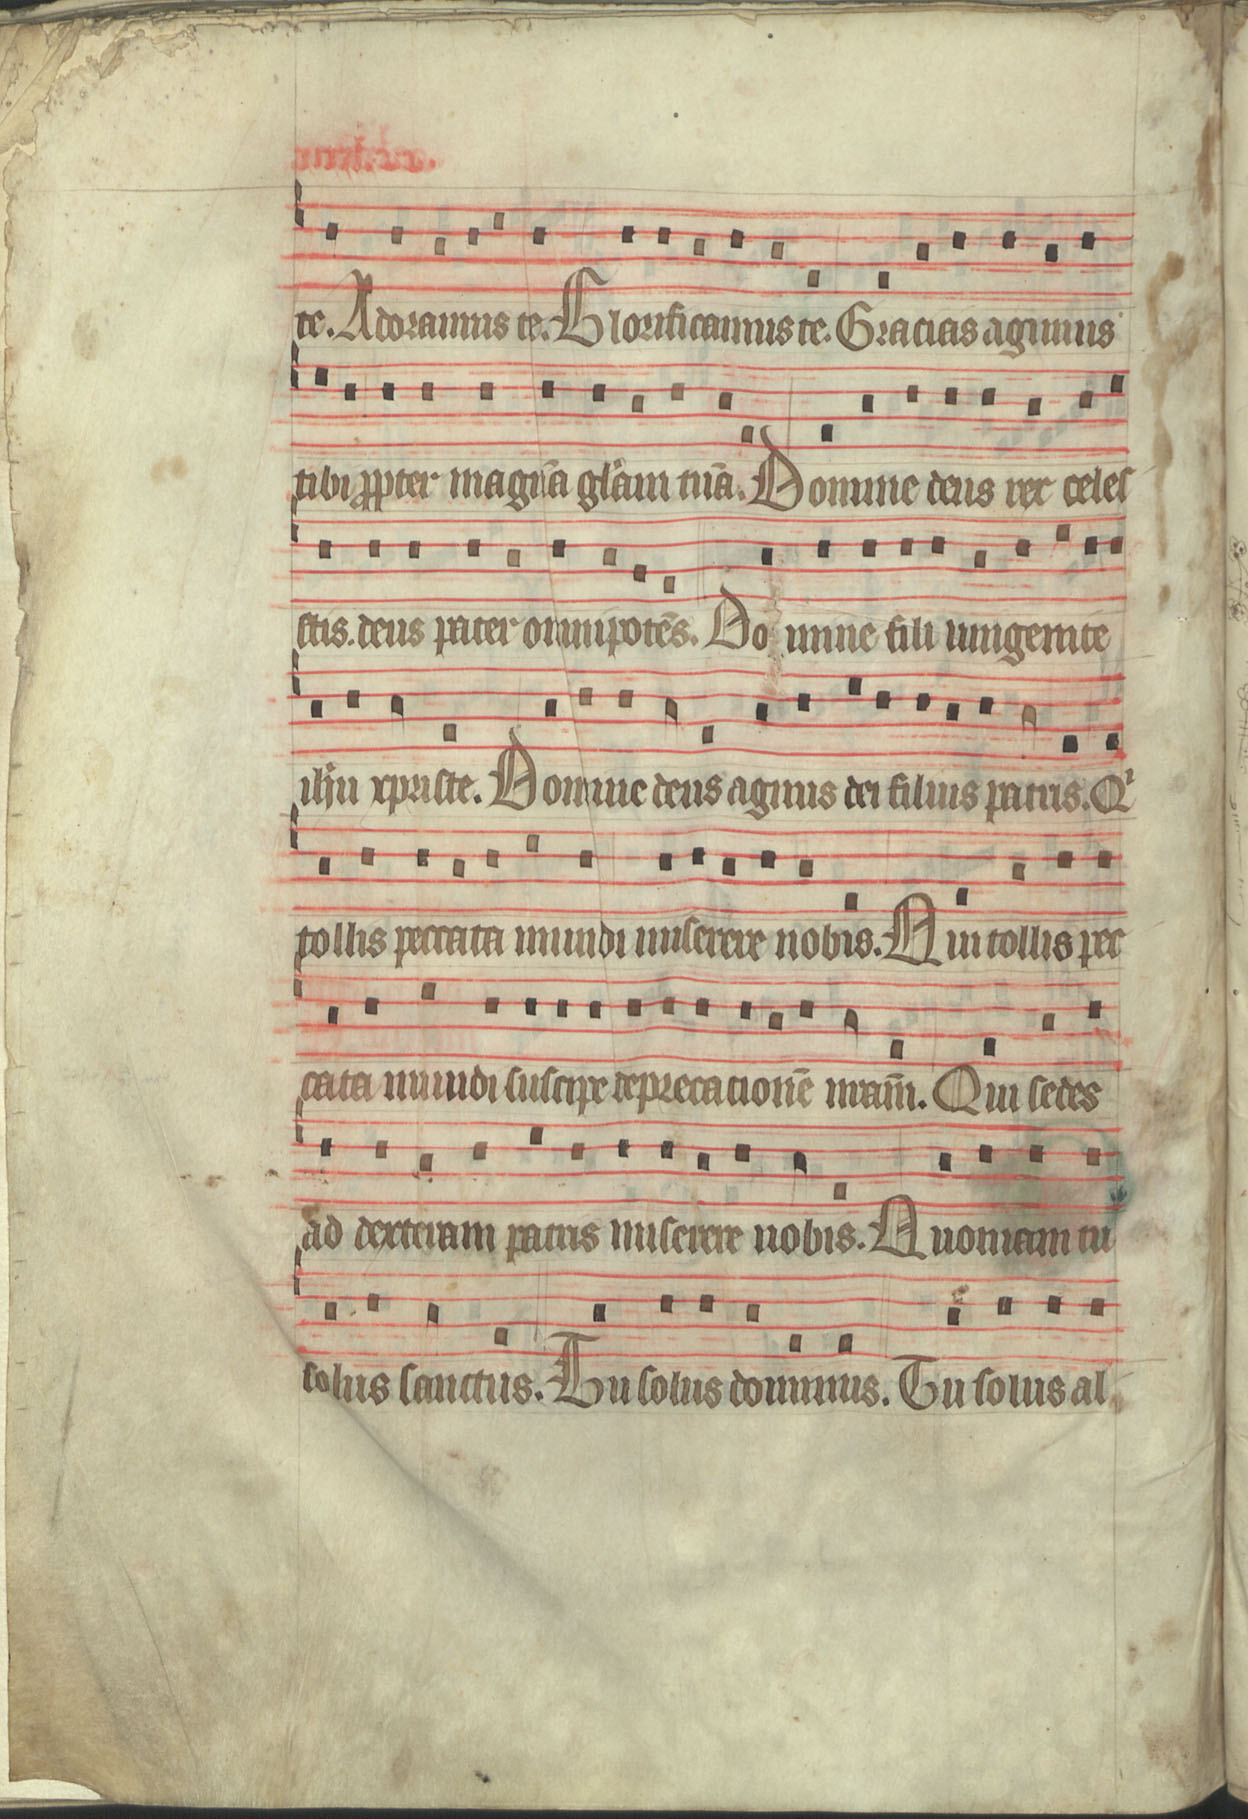 te. Adoramus te. Glorificamus te. Gracias agimus
tibi ꝓpter magnā glam̄ tuā. Domine deus rex celes
stis. deus pater omnipotēs. Do mine fili unigenite
ihu xpriste. Domine deus agnus dei filius patris. Qi
tollis peccata mundi miserere nobis. Qui tollis pec
cata mundi suscipe deprecationē nram̄. Qui sedes
ad dexteram patris miserere nobis. Quoniam tu
solus sanctus. Tu solus dominus. Tu solus al